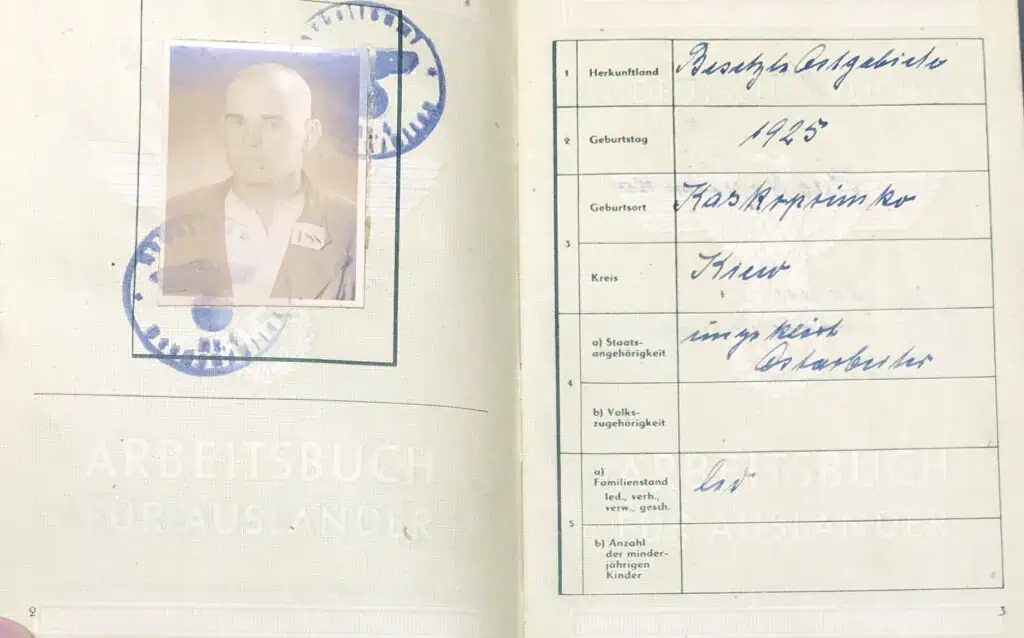 188
ARBEITSBUCH
FÜR AUSLÄNDER
2
1 Herkunftland Besetzte Ostgebiete
2 Geburtstag 1925
3 Geburtsort
Kreis Kiew
4 a) Staats-
angehörigkeit ungeklärt
Ostarbeiter
b) Volks-
zugehörigkeit
5 a)
Familienstand
led., verh.,
verw., gesch. led
b) Anzahl
der minder-
jährigen
Kinder
ARBEITSBUCH
FÜR AUSLÄNDER
3